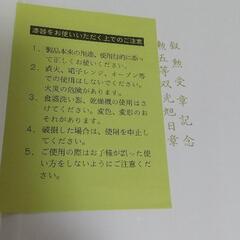 漆器をお使いいただく上でのご注意
1、製品本来の用途、使用目的に添っ
て正しくお使いください。
2、直火、電子レンジ、オーブン等
での使用はしないでください。
火災の危険があります。
3、食器洗い器、乾燥機の使用はさけ
てください。変色、変形のお
それがあります。
4、破損した場合は、使用を中止し
てください。
5、ご使用の際はお子様が誤った使
い方をしないようにご注意くださ
い。
叙勲受章記念
勲五等双光旭日章